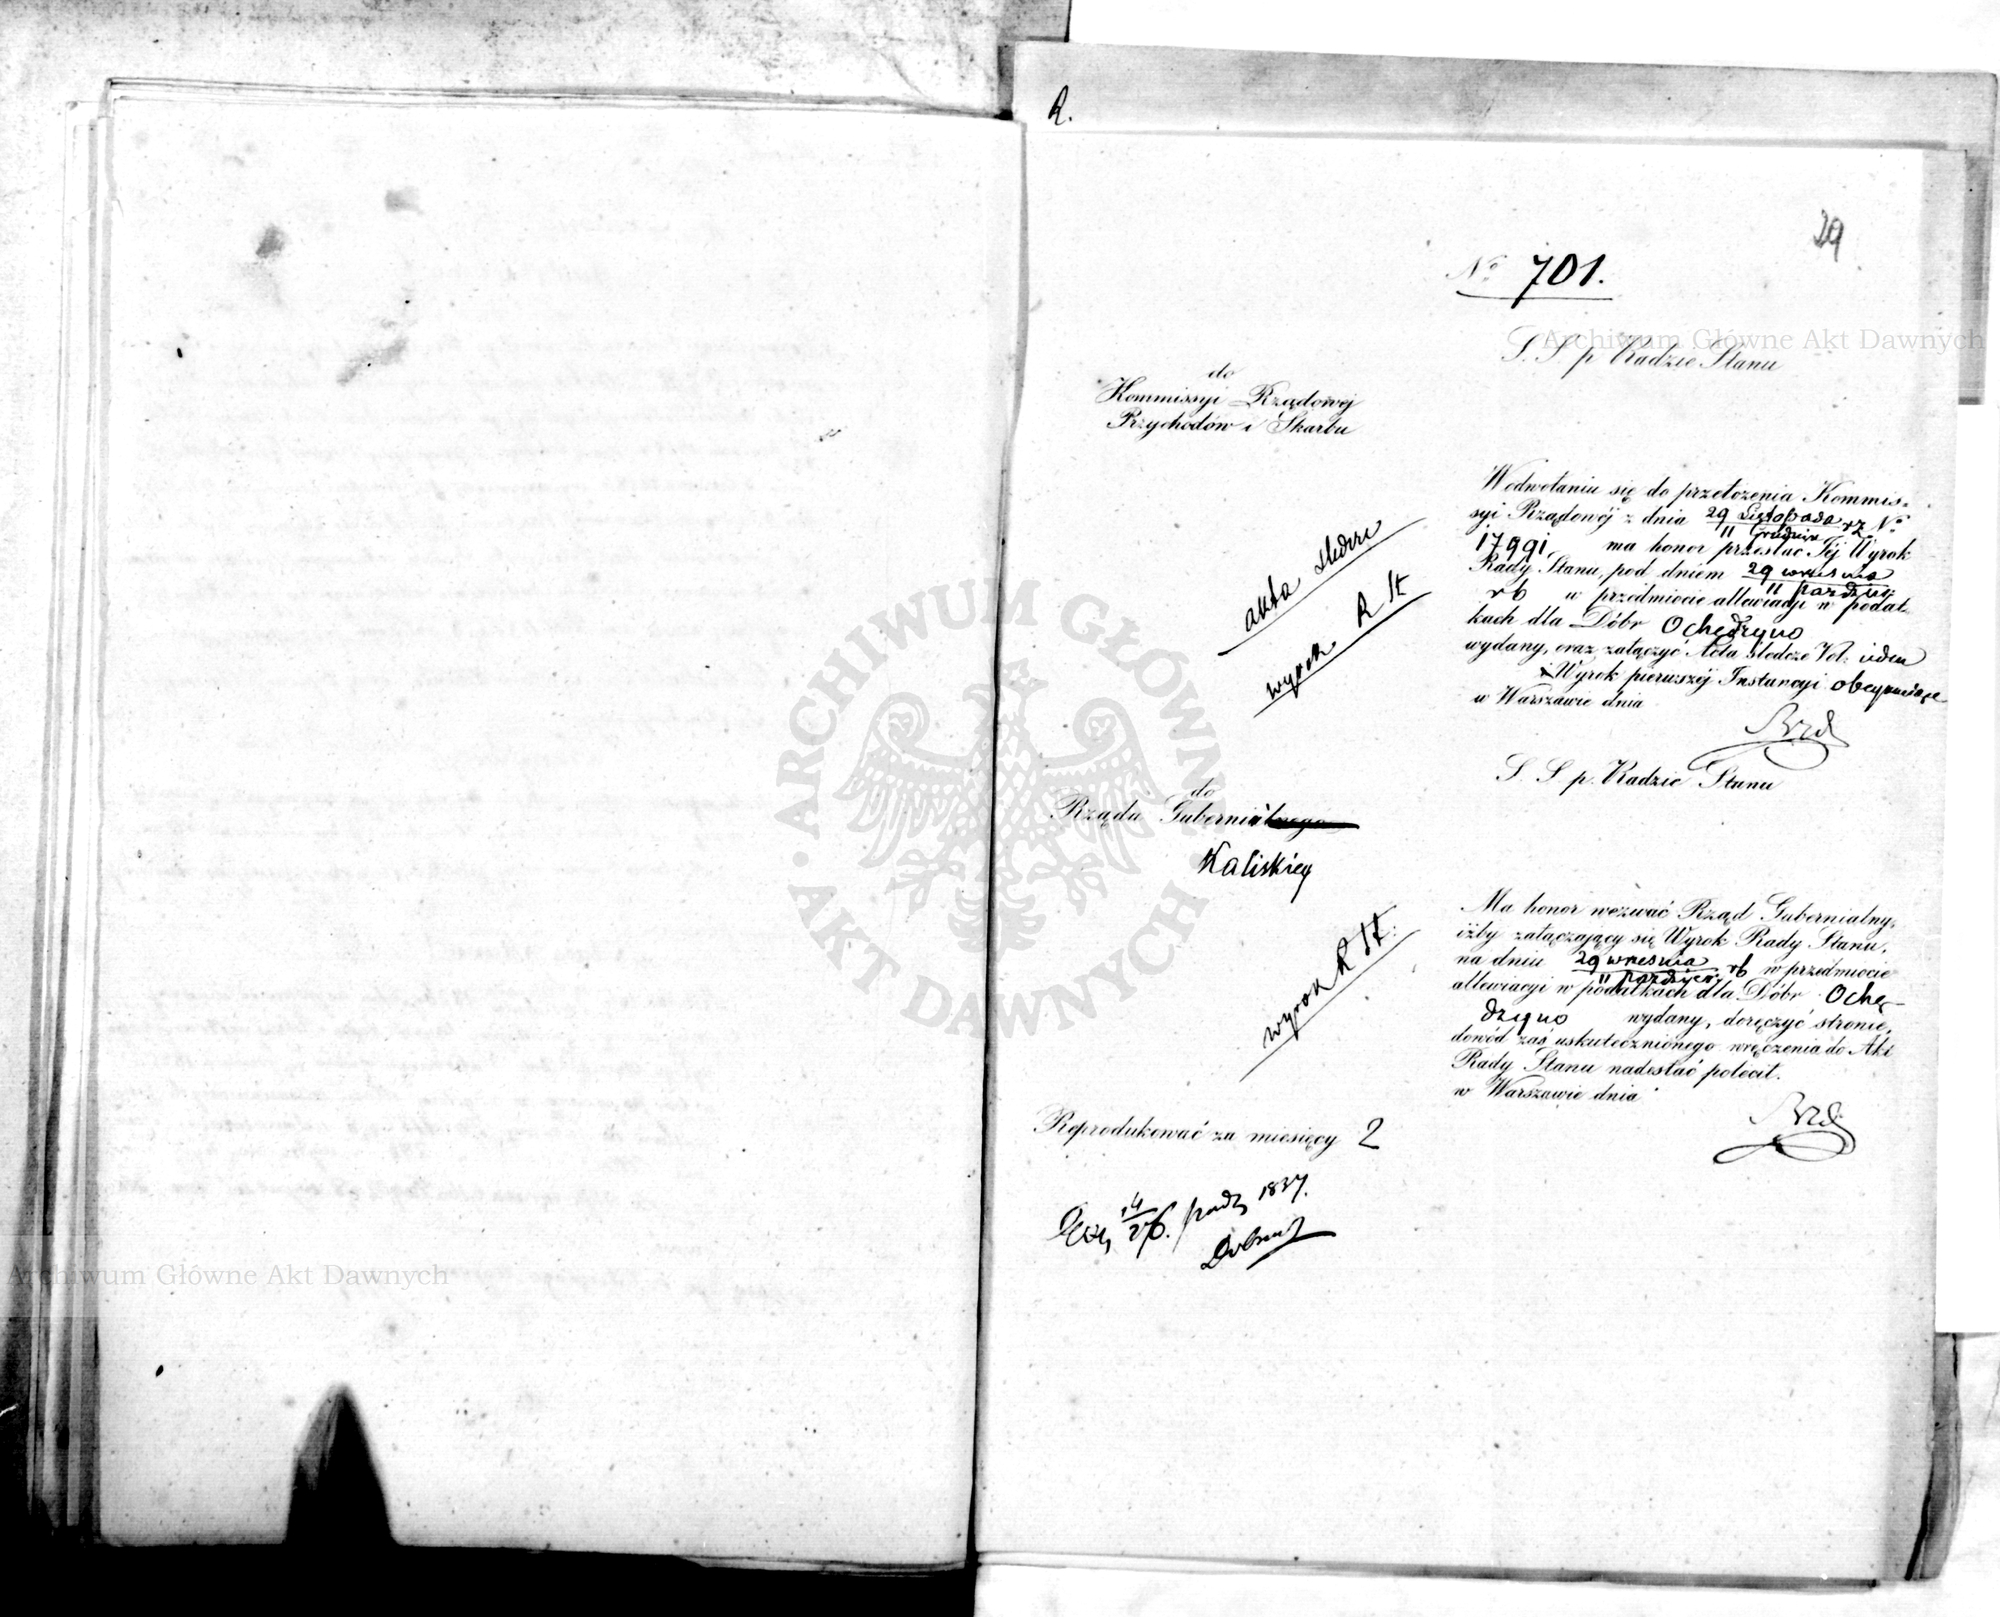 R.
29
Nº 701.
S. S. p. Radzie Stanu
do
Kommissyi Rządowej
Przychodów i Skarbu
W odwołaniu się do przełożenia Kommis-
syi Rządowej z dnia 29 Listopada / 11 Grudnia rz Nº
17991 ma honor przesłać Jej Wyrok
Rady Stanu, pod dniem 29 września / 11 paździer
rb w przedmiocie allewiacyi w podat-
kach dla Dóbr Ochędzyno
wydany, oraz załączyć Acta śledcze Vol:
i Wyrok pierwszéj Instancyi
w Warszawie dnia
akta śledcze
wyrok R St
S. S. p. Radzie Stanu
do
Rządu Gubernialnego
Kaliskiey
Ma honor wezwać Rząd Gubernialny,
iżby załączający się Wyrok Rady Stanu,
na dniu 29 września / 11 paździer. rb w przedmiocie
allewiacyi w podatkach dla Dóbr Ochę-
dzyno wydany, doręczyć stronie,
dowód zaś uskutecznionego wręczenia do Akt
Rady Stanu nadesłać polecił.
w Warszawie dnia
wyrok R St:
Reprodukować za miesięcy 2
14/26. paźdz 1837.
Archiwum Główne Akt Dawnych
Archiwum Główne Akt Dawnych
ARCHIWUM GŁÓWNE
AKT DAWNYCH